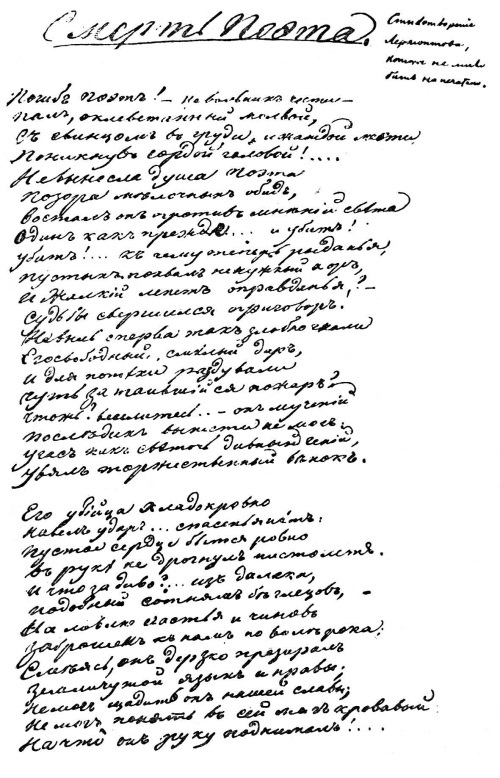 Смерть Поэта.
Стихотвореніе
Лермонтова,
которое не
быть на печатано.
Погибъ поэтъ! — невольникъ чести —
Палъ, оклеветанный молвой,
Съ свинцомъ въ груди, и жаждой мести
Поникнувъ гордой головой!....
Не вынесла душа поэта
Позора мѣлочныхъ обидъ,
Возсталъ онъ противъ мнѣній свѣта
Одинъ какъ прежде... и убитъ!
убитъ!... къ чему теперь рыданья,
пустыхъ похвалъ ненужный хоръ,
И жалкій лепетъ оправданья? —
Судьбы свершился приговоръ.
Не вы ль сперва такъ злобно гнали
Его свободный, смѣлый даръ,
и для потѣхи раздували
чуть затаившійся пожаръ?
чтожъ? веселитесь.. — онъ мученій
Послѣднихъ вынести не могъ:
угасъ какъ свѣточь дивный геній,
увялъ торжественный вѣнокъ.
Его убійца хладокровно
Навелъ ударъ... спасенья нѣтъ:
Пустое сердце бьется ровно
Въ рукѣ не дрогнулъ пистолетъ.
И что за диво?... изъ далека,
подобный сотнямъ бѣглецовъ, —
На ловлю счастья и чиновъ
Заброшенъ къ намъ по волѣ рока;
Смѣясь, онъ дерзко презиралъ
Земли чужой языкъ и нравы;
Не могъ щадить онъ нашей славы;
Не могъ понять въ сей мигъ кровавый
На чтò онъ руку поднималъ!....